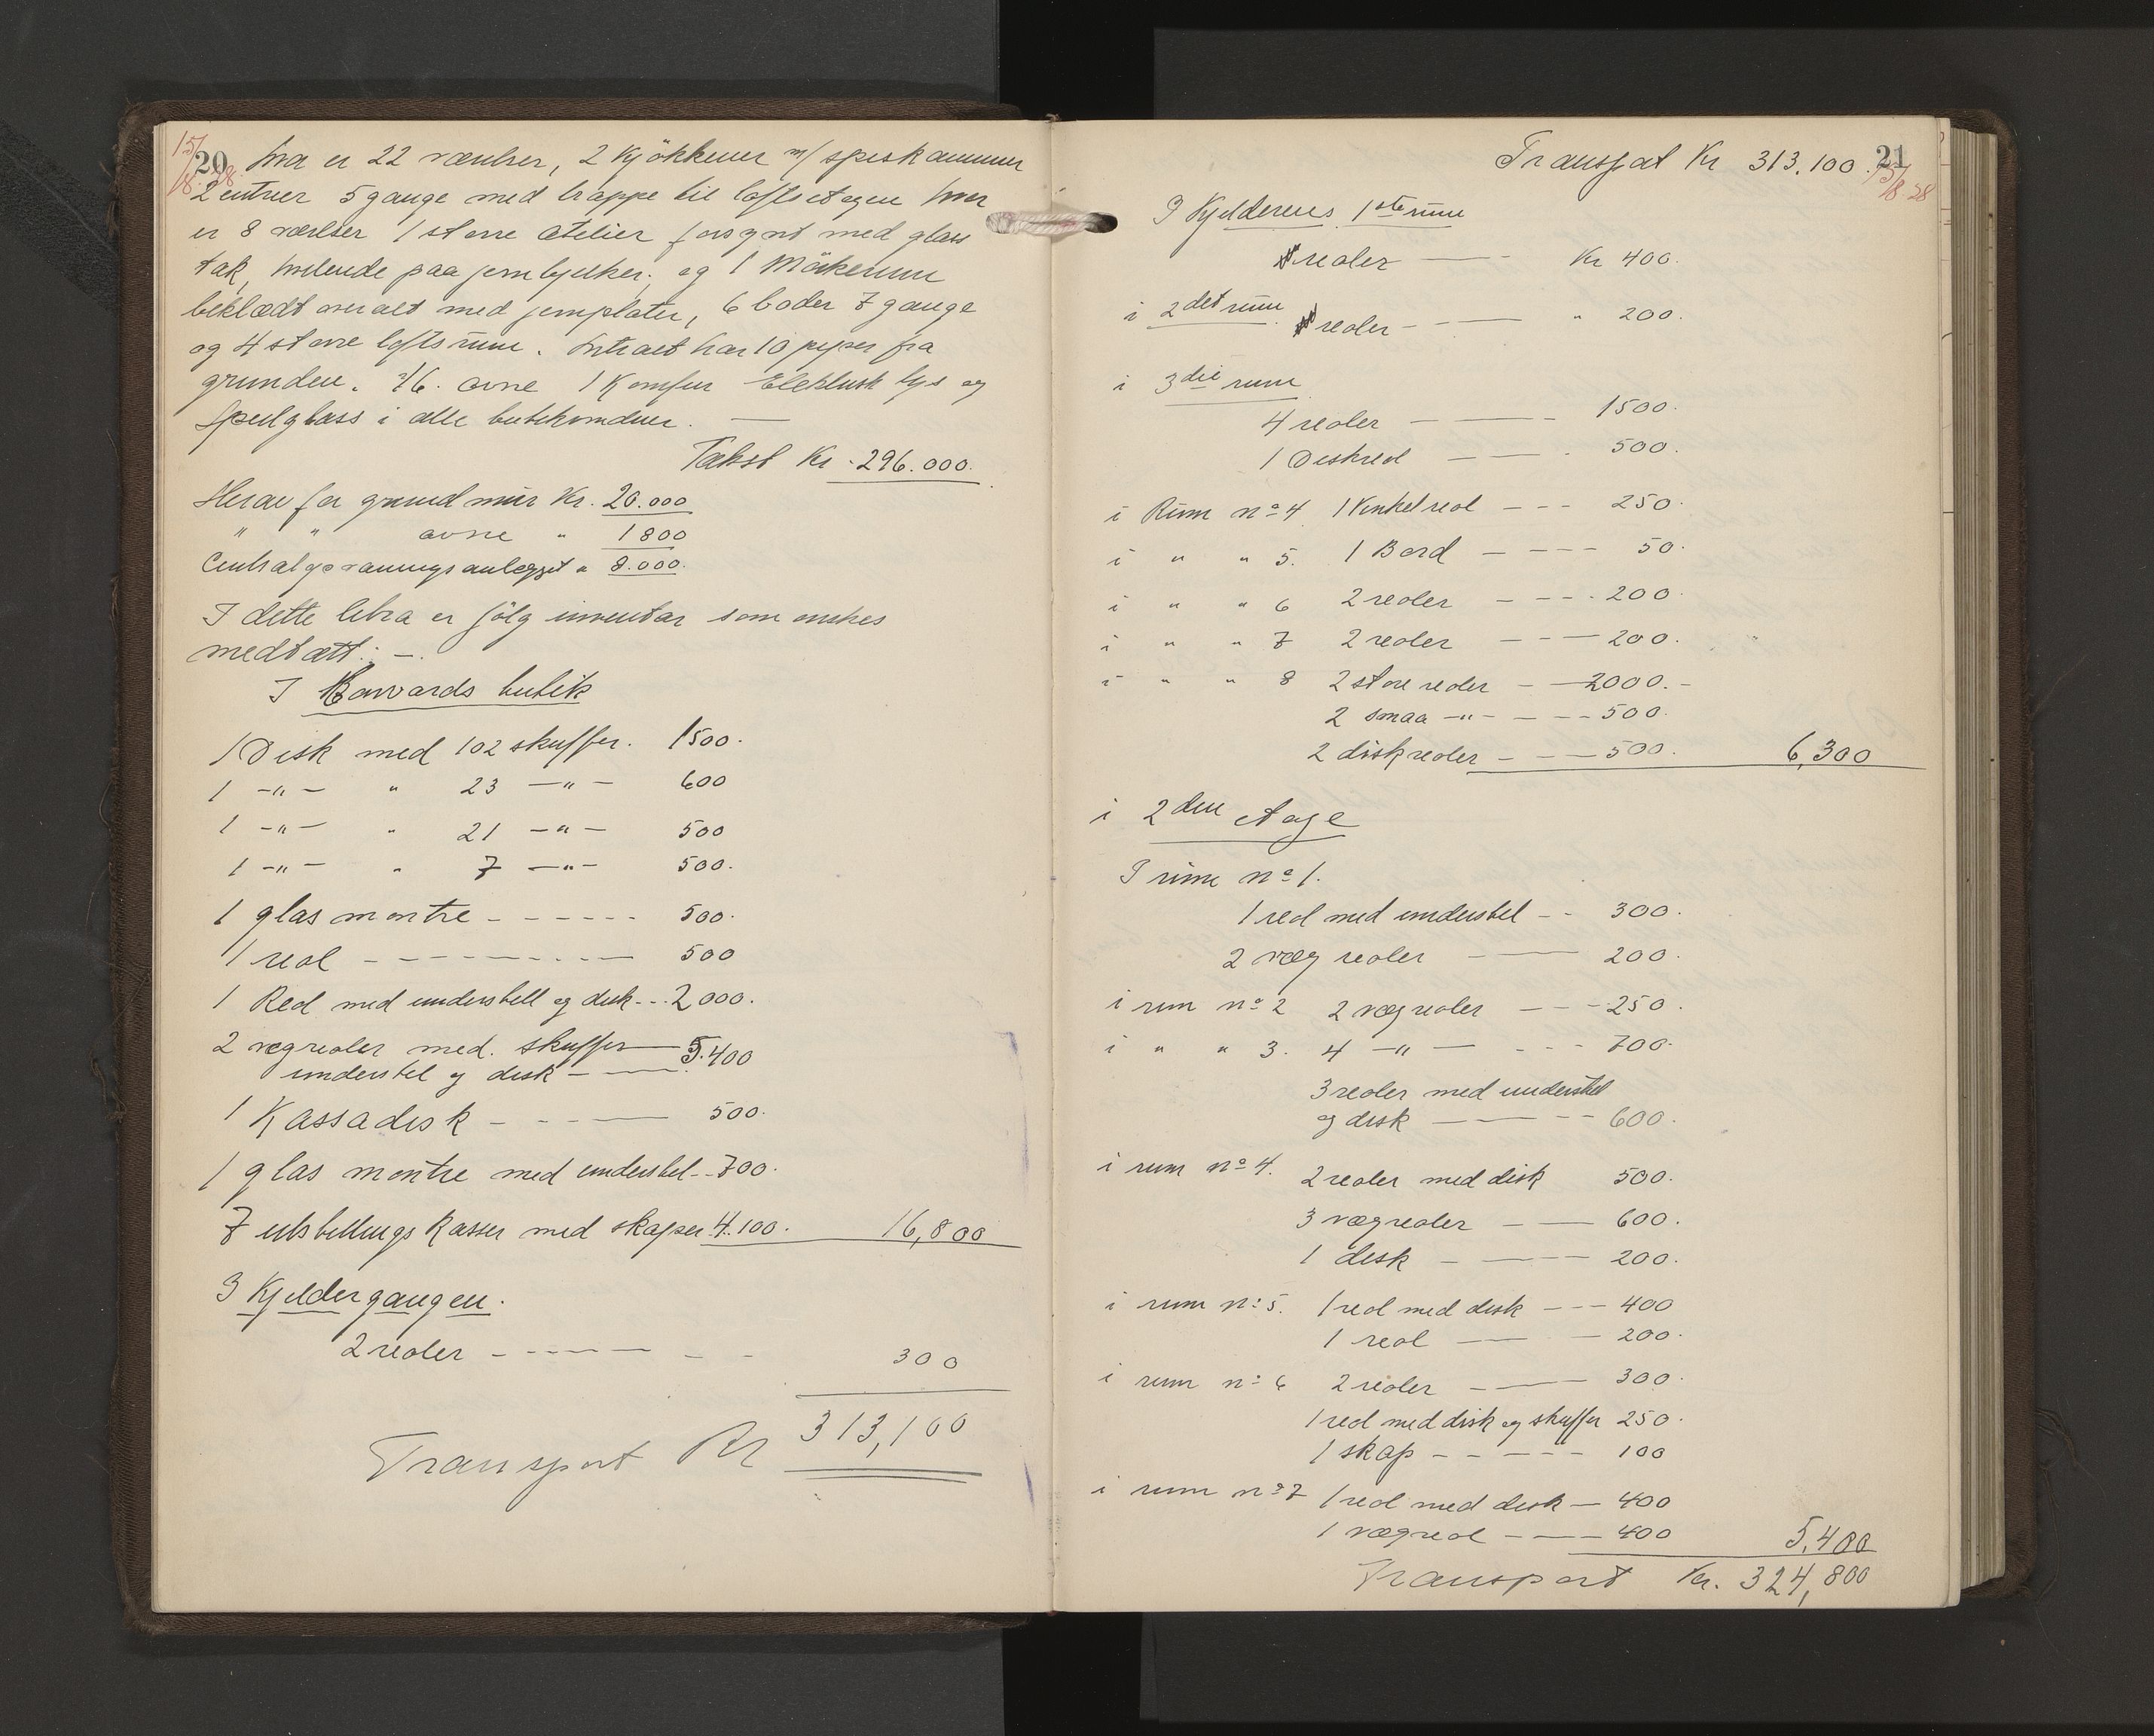 15/8.28.
20
hvor er 22 værelser, 2 Kjökkener m/ speiskammer
2 entreer 5 gange med trappe til loftsetagen hvor
er 8 værelser 1 större atelier forsynt med glass
tak, hvilende paa jernbjelker; og 1 Mörkerum
beklædt overalt med jernplater, 6 boder 7 gange
og 4 större loftsrum. Intraet har 10 piper fra
grunden. 46. ovne 1 Komfur Elektrisk lys og
Speilglass i alle butikvinduer. —
Takst Kr. 296.000.
Herav for grundmur Kr. 20.000
" " ovne " 1800
Centralopvarmningsanlegget " 8.000.
I dette litra er fölg inventar som önskes
medtatt: —.
I Bawards butik
1 Disk med 102 skuffer. 1500.
1 -"- " 23 -"- 600
1 -"- " 21 -"- 500
1 -"- " 7 -"- 500.
1 glas montre - - - - - - 500.
1 reol - - - - - - - - 500
1 Reol med understell og disk - - - 2000.
2 vægreoler med. skuffer
understel og disk - — 5.400
1 Kassadisk - - - — 500.
1 glas montre med understel - - 700.
7 utstillings Kasser med skaper 4.100. 16,800
I Kjeldergangen.
2 reoler - - - — - - 300
Transport Kr 313,100
Transpot Kr 313.100.
21
15/8 28
I Kjelderens 1ste rum
reoler — - Kr 400.
i 2det rum
reoler - - — " 200.
i 3die rum
4 reoler - — - 1500.
1 Diskreol — — . 500.
i Rum no 4 1 Vinkelreol - - - 250.
i " " 5. 1 Bord - - - - 50.
i " " 6 2 reoler - - - - 200.
i " " 7 2 reoler - - — 200.
i " " 8 2 store reoler - — 2000.-
2 smaa -"- - - - 500.
2 diskreoler - - — 500. 6,300
i 2den etage
I rum no 1.
1 reol med understel - - 300.
2 væg reoler — — 200.
i rum no 2 2 vægreoler - - - 250.
i " " 3. 4 -"- - - - 700.
3 reoler med understel
og disk — — - - 600.
i rum no 4. 2 reoler med disk 500.
3 vægreoler - — 600.
1 disk - — - 200.
i rum no 5. 1 reol med disk - - - 400
1 reol — - 200.
i rum no 6 2 reoler - — 300.
1 reol med disk og skuffer 250.
1 skap - - - - - 100
i rum no 7 1 reol med disk — 400
1 vægreol - - — 400 5.400
Transport Kr. 324,800